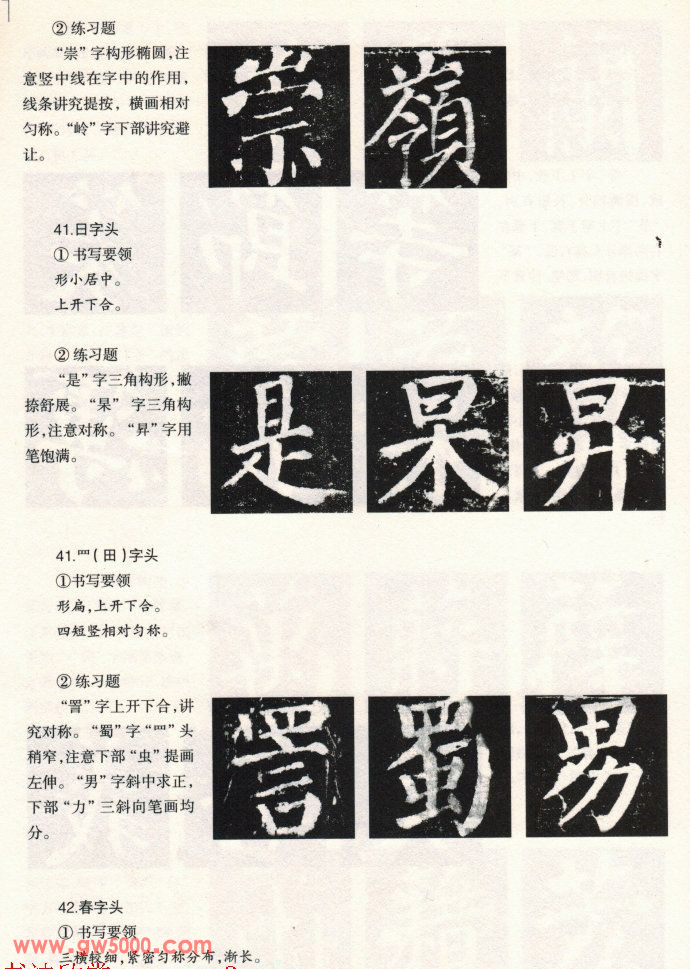 ② 练习题
“崇”字构形椭圆,注
意竖中线在字中的作用,
线条讲究提按, 横画相对
匀称。“岭”字下部讲究避
让。
崇 嶺
41.日字头
① 书写要领
形小居中。
上开下合。
② 练习题
“是”字三角构形,撇
捺舒展。“杲”字三角构
形,注意对称。“昇”字用
笔饱满。
是 杲 昇
41.罒(田)字头
①书写要领
形扁,上开下合。
四短竖相对匀称。
② 练习题
“詈”字上开下合,讲
究对称。“蜀”字“罒”头
稍窄,注意下部“虫”提画
左伸。“男”字斜中求正,
下部“力”三斜向笔画均
分。
詈 蜀 男
42.春字头
① 书写要领
www.gw5000.com
三横较细,紧密匀称分布,渐长。